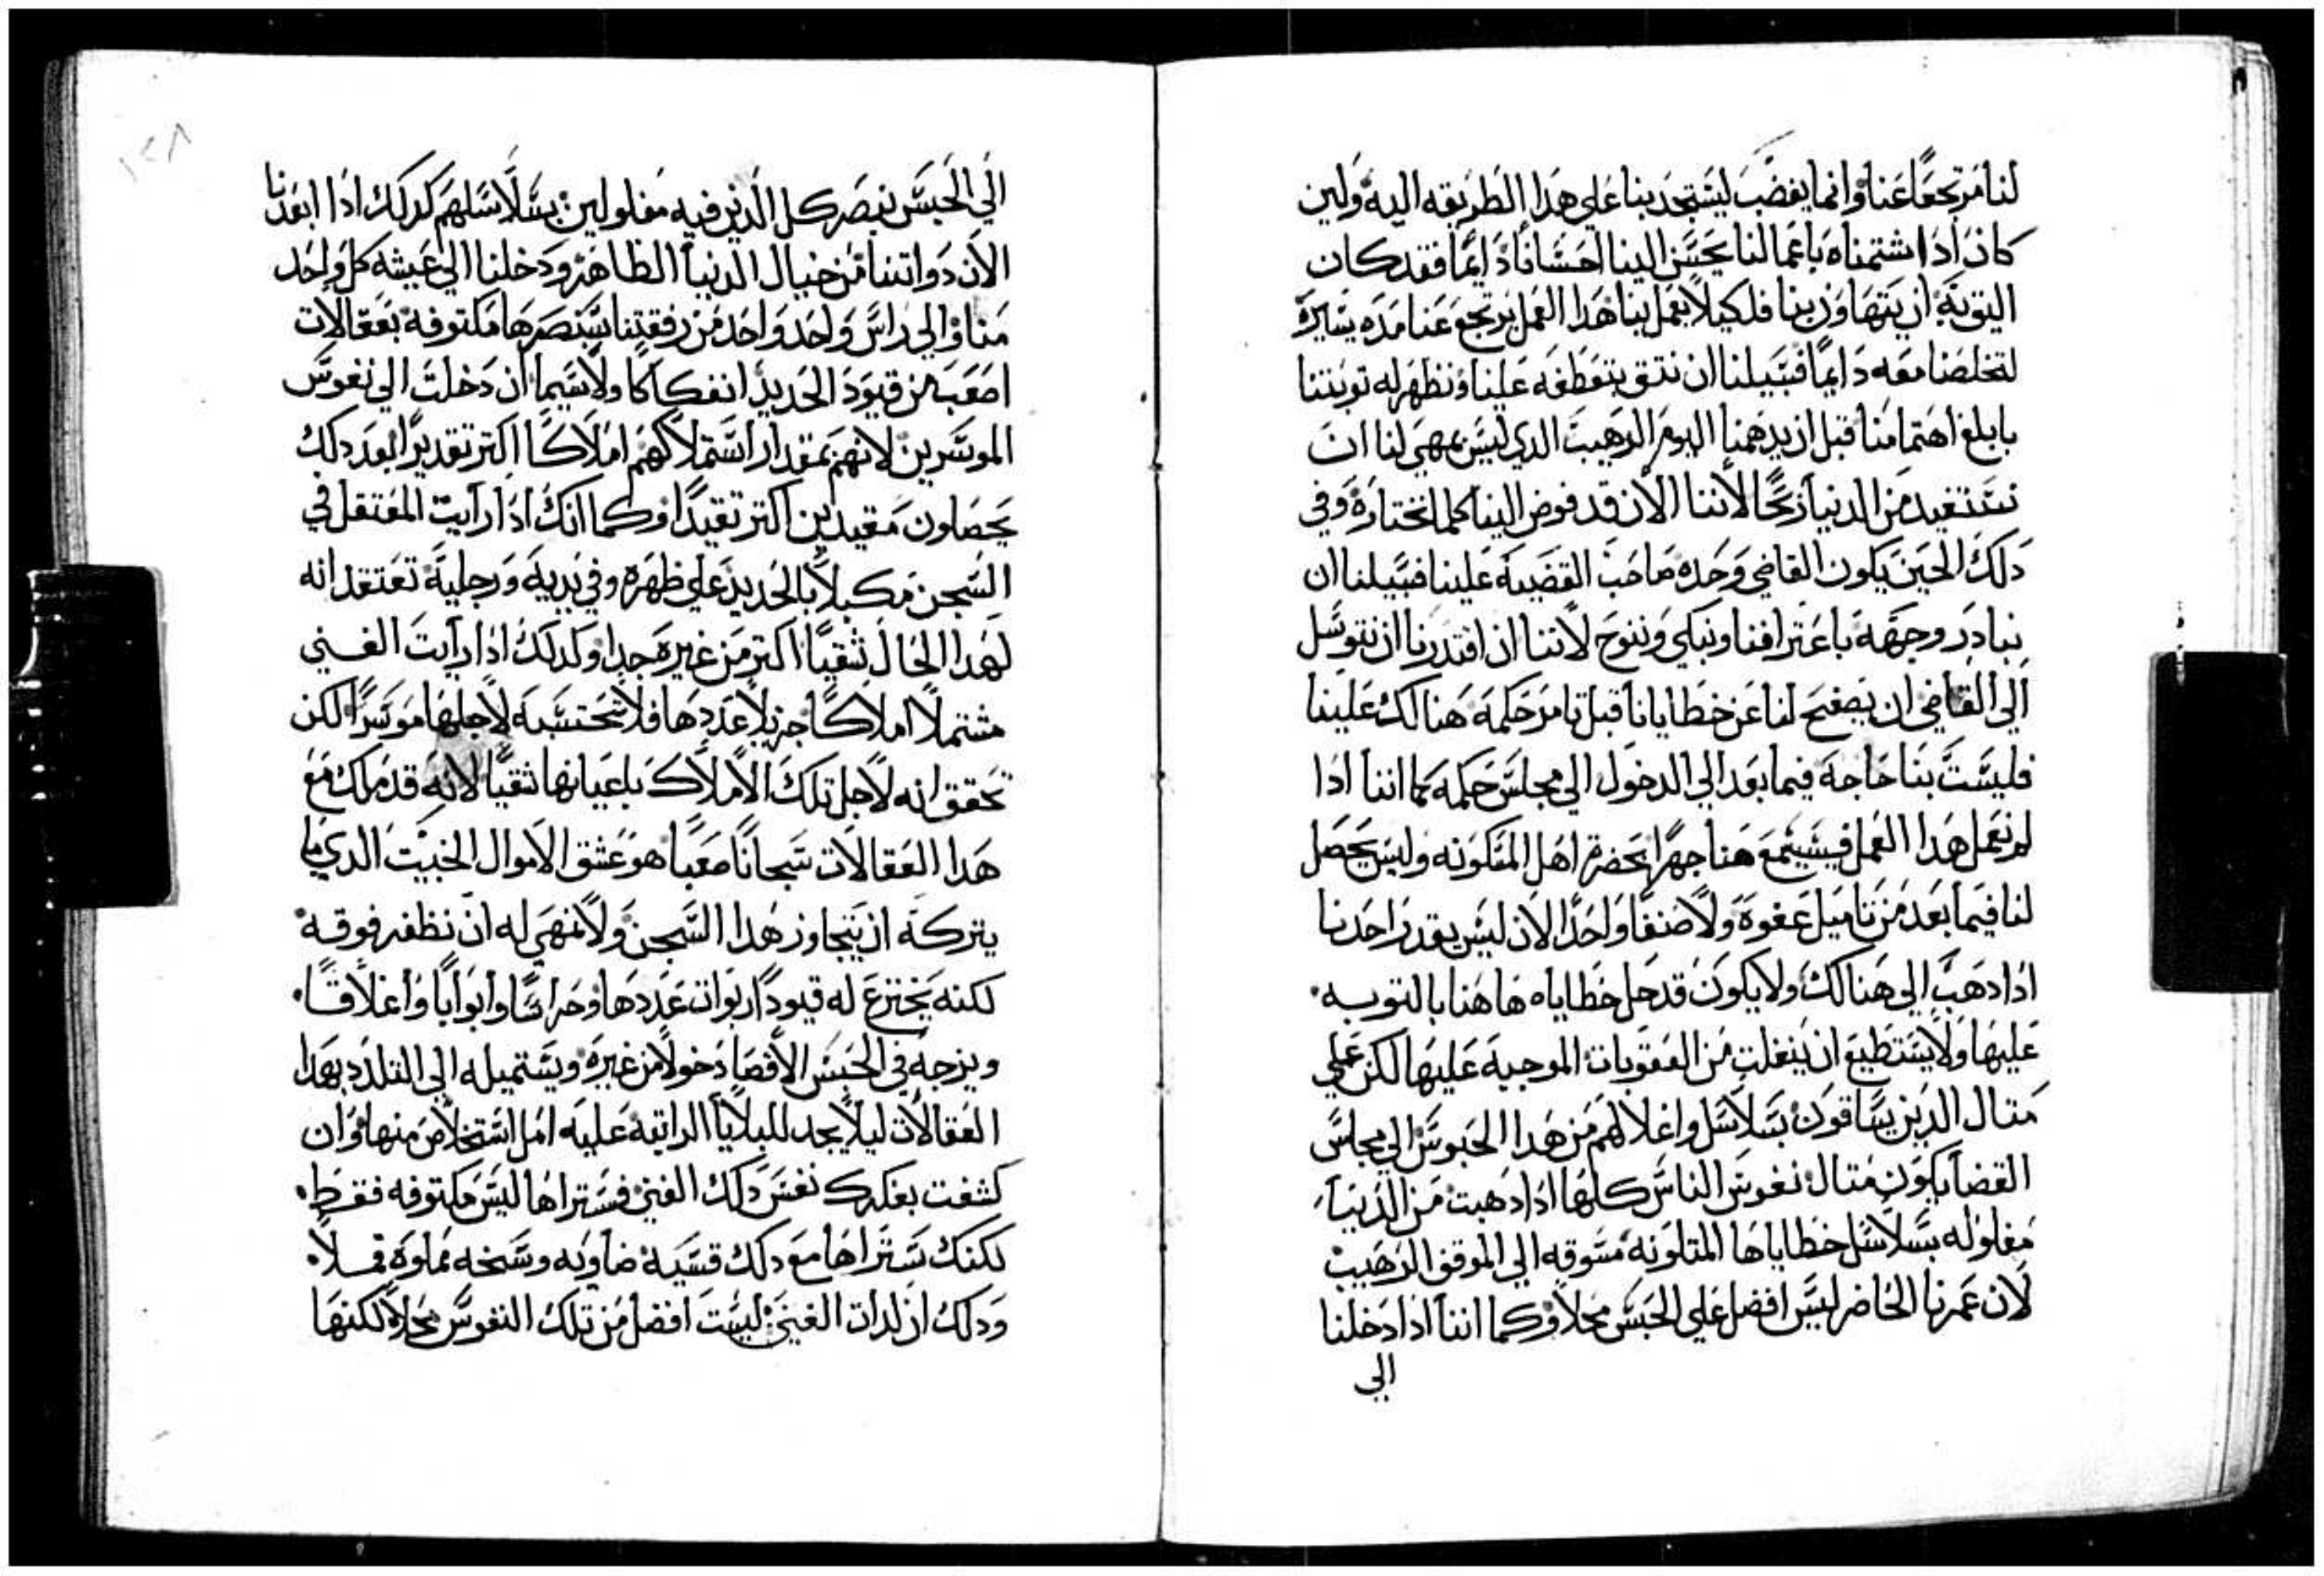 لنا مرتجعًا عنا وانما يغضب ليستجدبنا علي هدا الطريقه اليه ولين
كان ادا شتمناه باعمالنا يحسن الينا احسانًا دايمًا فقد كان
اليق به ان يتهاون بنا فلكيلا يعمل بنا هدا العمل يرتجع عنا مده يسيره
لتخلصنا معه دايمًا فسبيلنا ان نتق بتعطفه علينا ونظهر له توبتنا
بابلغ اهتمامنا قبل ان يدهمنا اليوم الرهيب الدي ليس يمهي لنا ان
نستفيد من الدنيا ربحًا لاننا الان قد فوض الينا كلما نختاره وفي
دلك الحين يكون القاضي وحده صاحب القضيه علينا فسبيلنا ان
نبادر وجهه باعترافنا ونبكي وننوح لاننا ان اقتدرنا ان نتوسل
الي القاضي ان يصفح لنا عن خطايانا قبل تامر حكمه هنالك علينا
فليست بنا حاجه فيما بعد الي الدخول الي مجلس حكمه كما اننا ادا
لم نعمل هدا العمل فيستمع هنا جهرًا بحضرة اهل المسكونه وليس يحصل
لنا فيما بعد من تاميل عفوه ولا صنفًا واحدًا لان ليس يقدر احدنا
ادا دهب الي هنالك ولا يكون قد حل خطاياه ها هنا بالتوبه
عليها ولا يستطيع ان ينفلت من العقوبات الموجبه عليها لكن علي
متال الدين يساقون بسلاسل واغلالهم من هدا الحبوس الي مجلس
القضا يكون متال نفوس الناس كلها ادا دهبت من الدنيا
مغلوله بسلاسل خطاياها المتلونه مسوقه الي الموقف الرهيب
لان عمرنا الحاضر ليس افضل علي الحبس محلاً وكما اننا ادا دخلنا
الي
١٢٨
الي الحبس نبصر كل الدين فيه مغلولين بسلاسلهم كدلك ادا ابعدنا
الان دواتنا من خيال الدنيا الظاهره ودخلنا الي عيشه كل واحد
منا والي راس واحد واحد من رفقتنا سنبصرها مكتوفه بعقالات
اصعب من قيود الحديد انفكاكًا ولاسيما ان دخلت الي نفوس
الموسرين لانهم بمقدار استملاكهم املاكًا اكتر تقديرًا بعد دلك
يحصلون مقيدين اكتر تقيدًا وكما انك ادا رايت المعتقل في
السجن مكبلاً بالحديد علي ظهره وفي يديه ورجليه تعتقد انه
لهدا الحال شقيًا اكتر من غيره جدا وكدلك ادا رايت الغني
مشتملاً املاكًا جزيلا عددها فلا تحتسبه لاجلها موسرًا لكن
تحقق انه لاجل تلك الاملاك باعيانها شقيًا لانه قد ملك مع
هدا العقالات سجانًا صعبًا هو عشق الاموال الخبيت الدي ما
يتركه ان يتجاوز هدا السجن ولا يمهي له ان نظفر فوقه
لكنه يخترع له قيودًا ربوات عددها وحراسًا وابوابًا واغلاقًا
ويزجه في الحبس الاقصا دخولاً من غيره ويستميله الي التلدد بهدا
العقالات ليلا يجد للبلايا الراتبه عليه امل استخلاص منها وان
كشفت بفكرك نفس دلك الغني فستراها ليس مكتوفه فقط
لكنك ستراها مع دلك قسيه ضاويه وسخه مملوه قملاً
ودلك ان لدات الغني ليست افضل من تلك النفوس محلاً لكنها